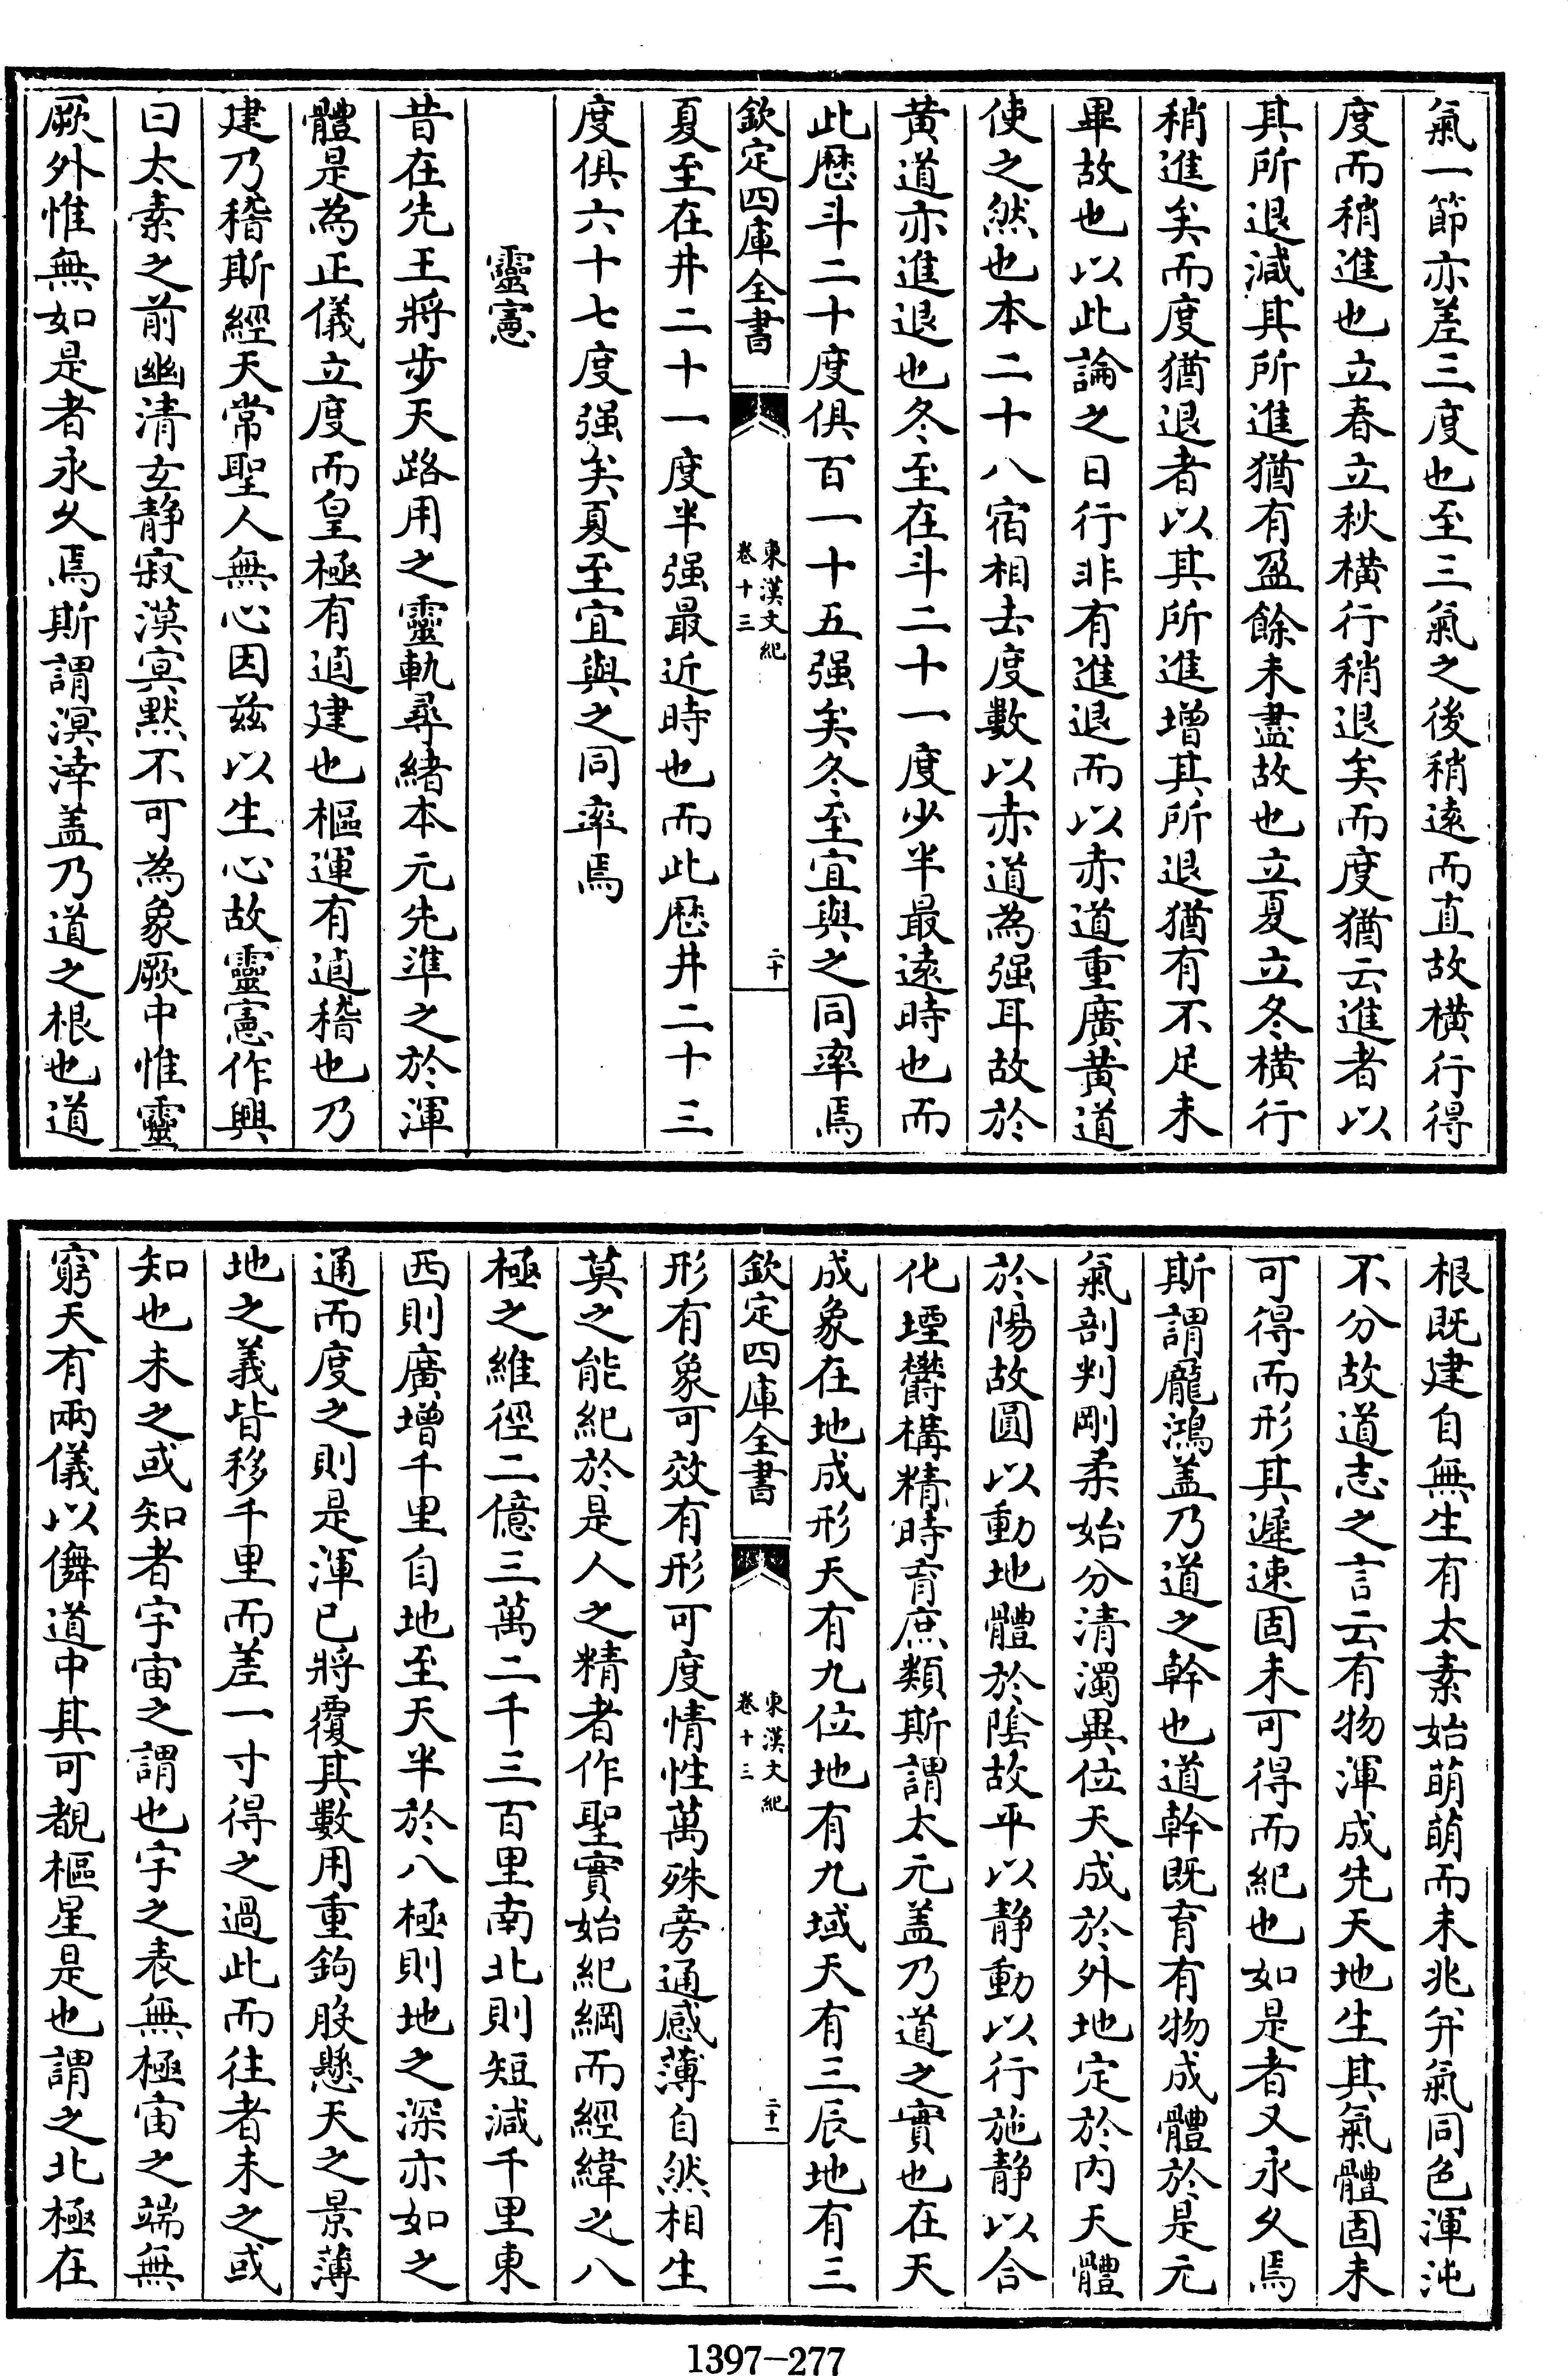 氣一節亦差三度也至三氣之後稍遠而直故横行得
度而稍進也立春立秋横行稍退矣而度猶云進者以
其所退減其所進猶有盈餘未盡故也立夏立冬横行
稍進矣而度猶退者以其所進增其所退猶有不足未
畢故也以此論之日行非有進退而以赤道重廣黄道
使之然也本二十八宿相去度數以赤道為强耳故於
黄道亦進退也冬至在斗二十一度少半最遠時也而
此厯斗二十度俱百一十五强矣冬至宜與之同率焉
欽定四庫全書
東漢文紀
卷十三
二十
夏至在井二十一度半强最近時也而此厯井二十三
度俱六十七度强矣夏至宜與之同率焉
靈憲
昔在先王將步天路用之靈軌尋緒本元先準之於渾
體是為正儀立度而皇極有逌建也樞運有逌稽也乃
建乃稽斯經天常聖人無心因兹以生心故靈憲作興
曰太素之前幽清玄静寂漠冥黙不可為象厥中惟靈
厥外惟無如是者永久焉斯謂溟涬盖乃道之根也道
根既建自無生有太素始萌萌而未兆并氣同色渾沌
不分故道志之言云有物渾成先天地生其氣體固未
可得而形其遲速固未可得而紀也如是者又永久焉
斯謂龎鴻盖乃道之幹也道幹既育有物成體於是元
氣剖判剛柔始分清濁異位天成於外地定於内天體
於陽故圓以動地體於隂故平以静動以行施静以合
化堙鬱構精時育庶類斯謂太元盖乃道之實也在天
成象在地成形天有九位地有九域天有三辰地有三
欽定四庫全書
東漢文紀
卷十三
二十一
形有象可效有形可度情性萬殊旁通感薄自然相生
莫之能紀於是人之精者作聖實始紀綱而經緯之八
極之維徑二億三萬二千三百里南北則短減千里東
西則廣增千里自地至天半於八極則地之深亦如之
通而度之則是渾已將覆其數用重鉤股懸天之景薄
地之義皆移千里而差一寸得之過此而往者未之或
知也未之或知者宇宙之謂也宇之表無極宙之端無
窮天有兩儀以儛道中其可覩樞星是也謂之北極在
1397-277